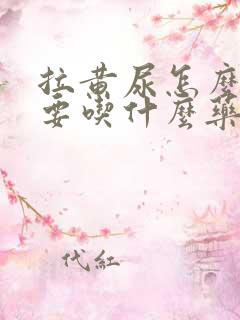 拉黄尿怎麼
要喫什麼藥
代紅